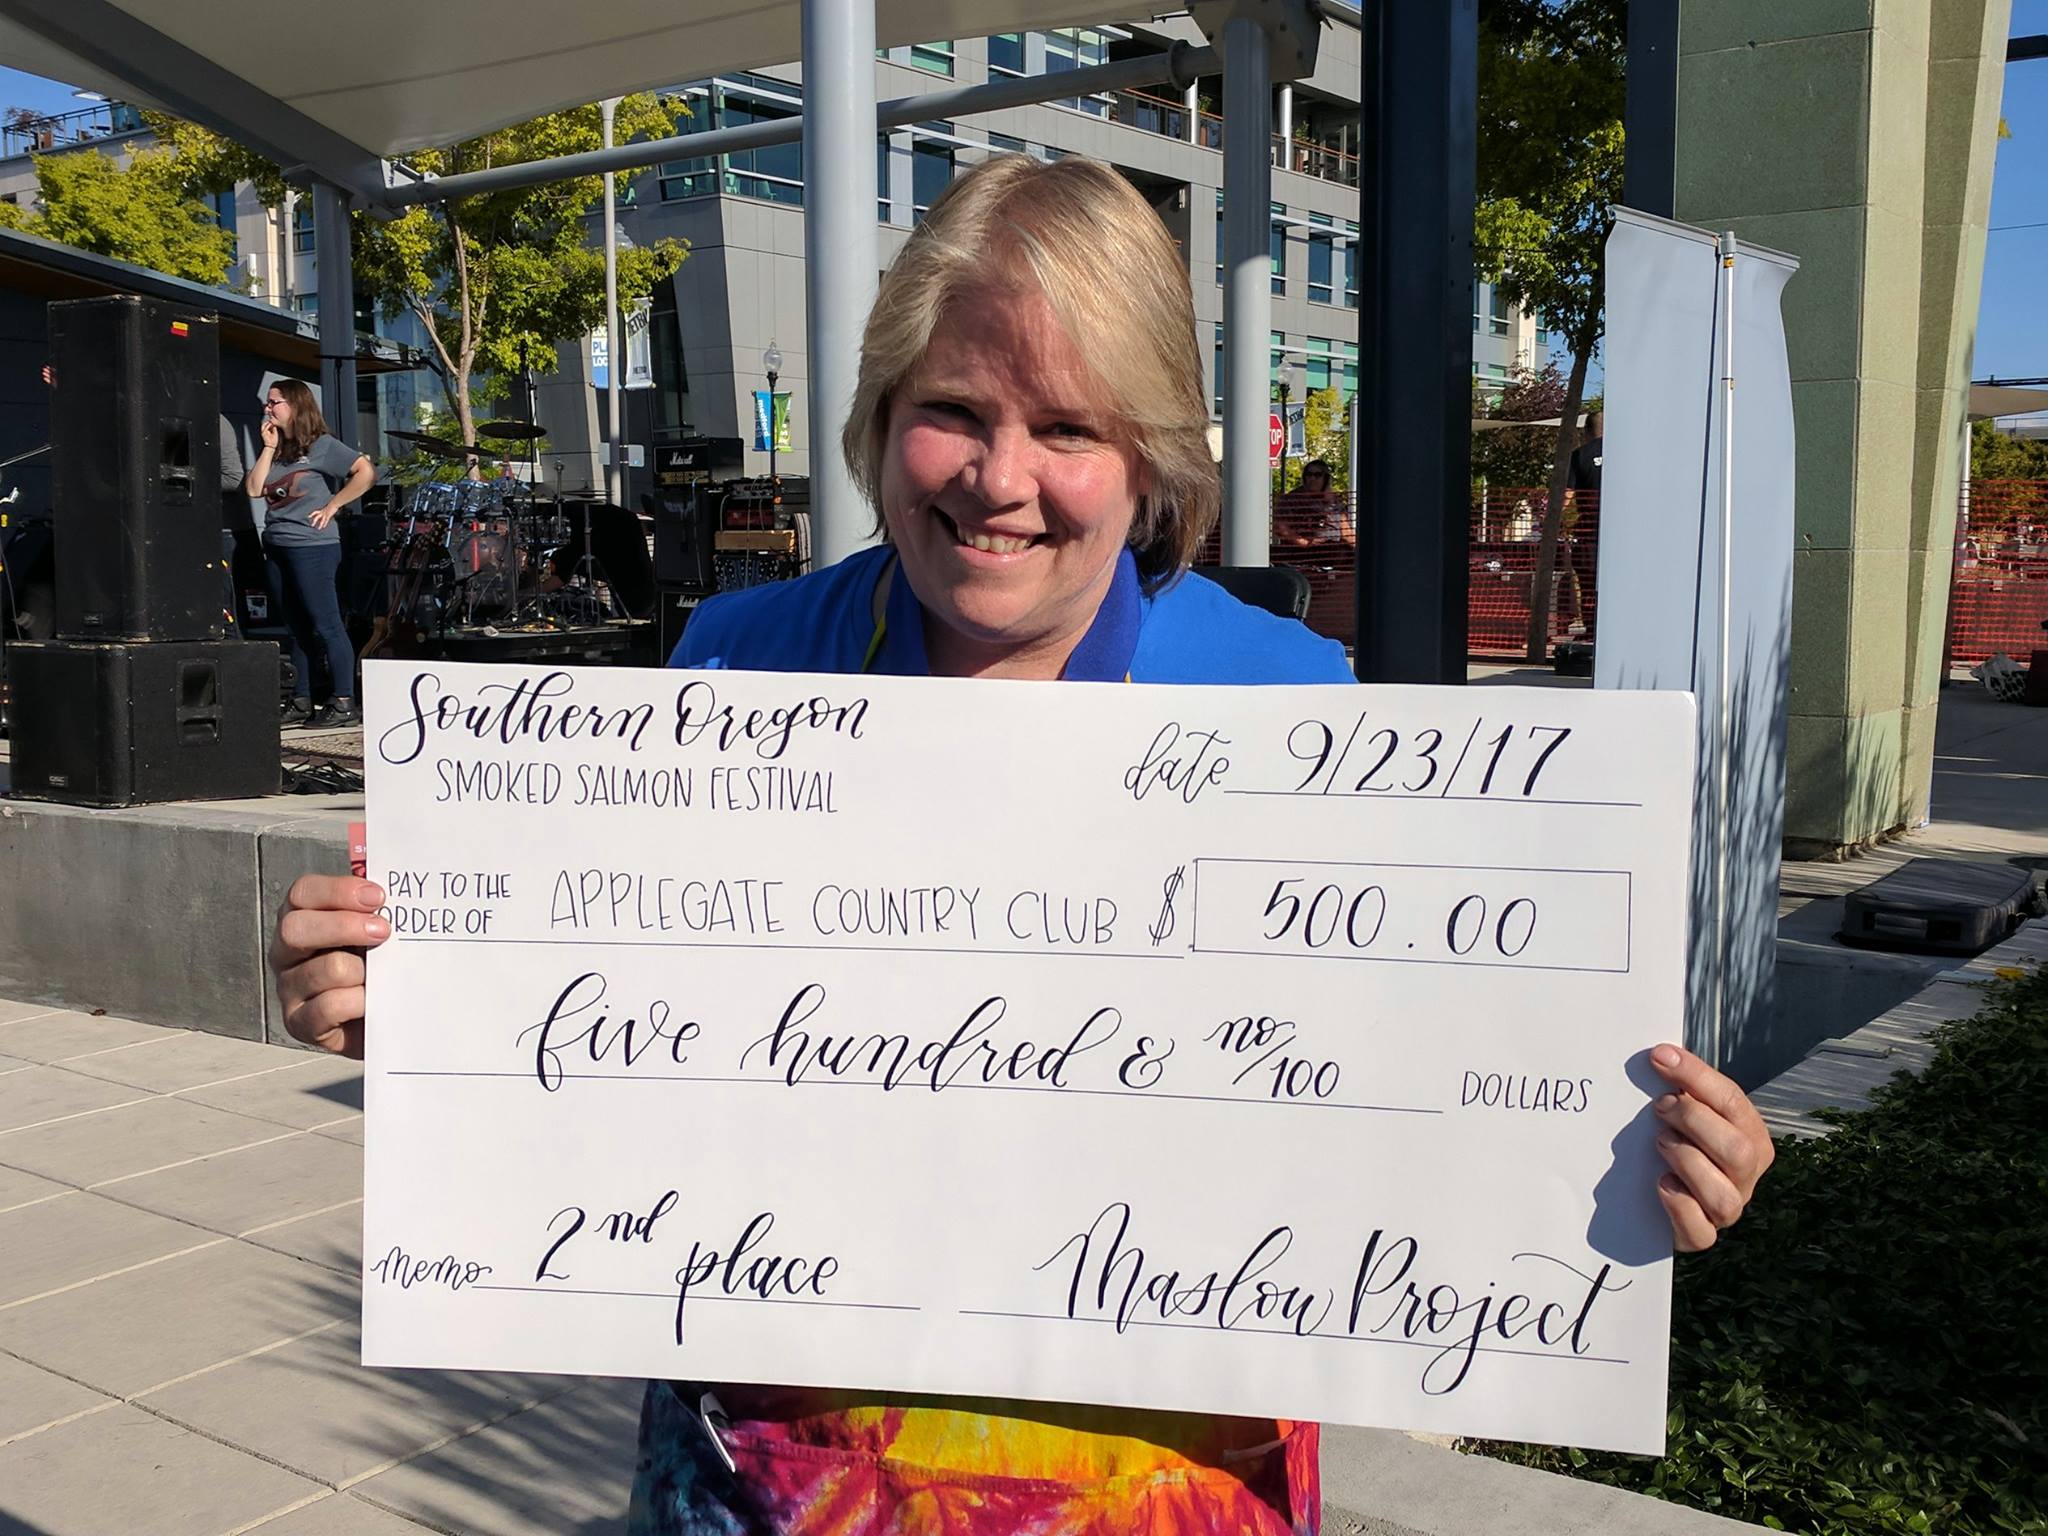 Southern Oregon
SMOKED SALMON FESTIVAL
date 9/23/17
PAY TO THE
ORDER OF APPLEGATE COUNTRY CLUB $ 500.00
five hundred & no/100 DOLLARS
memo 2nd place Maslow Project
Marshall
medford
METRO